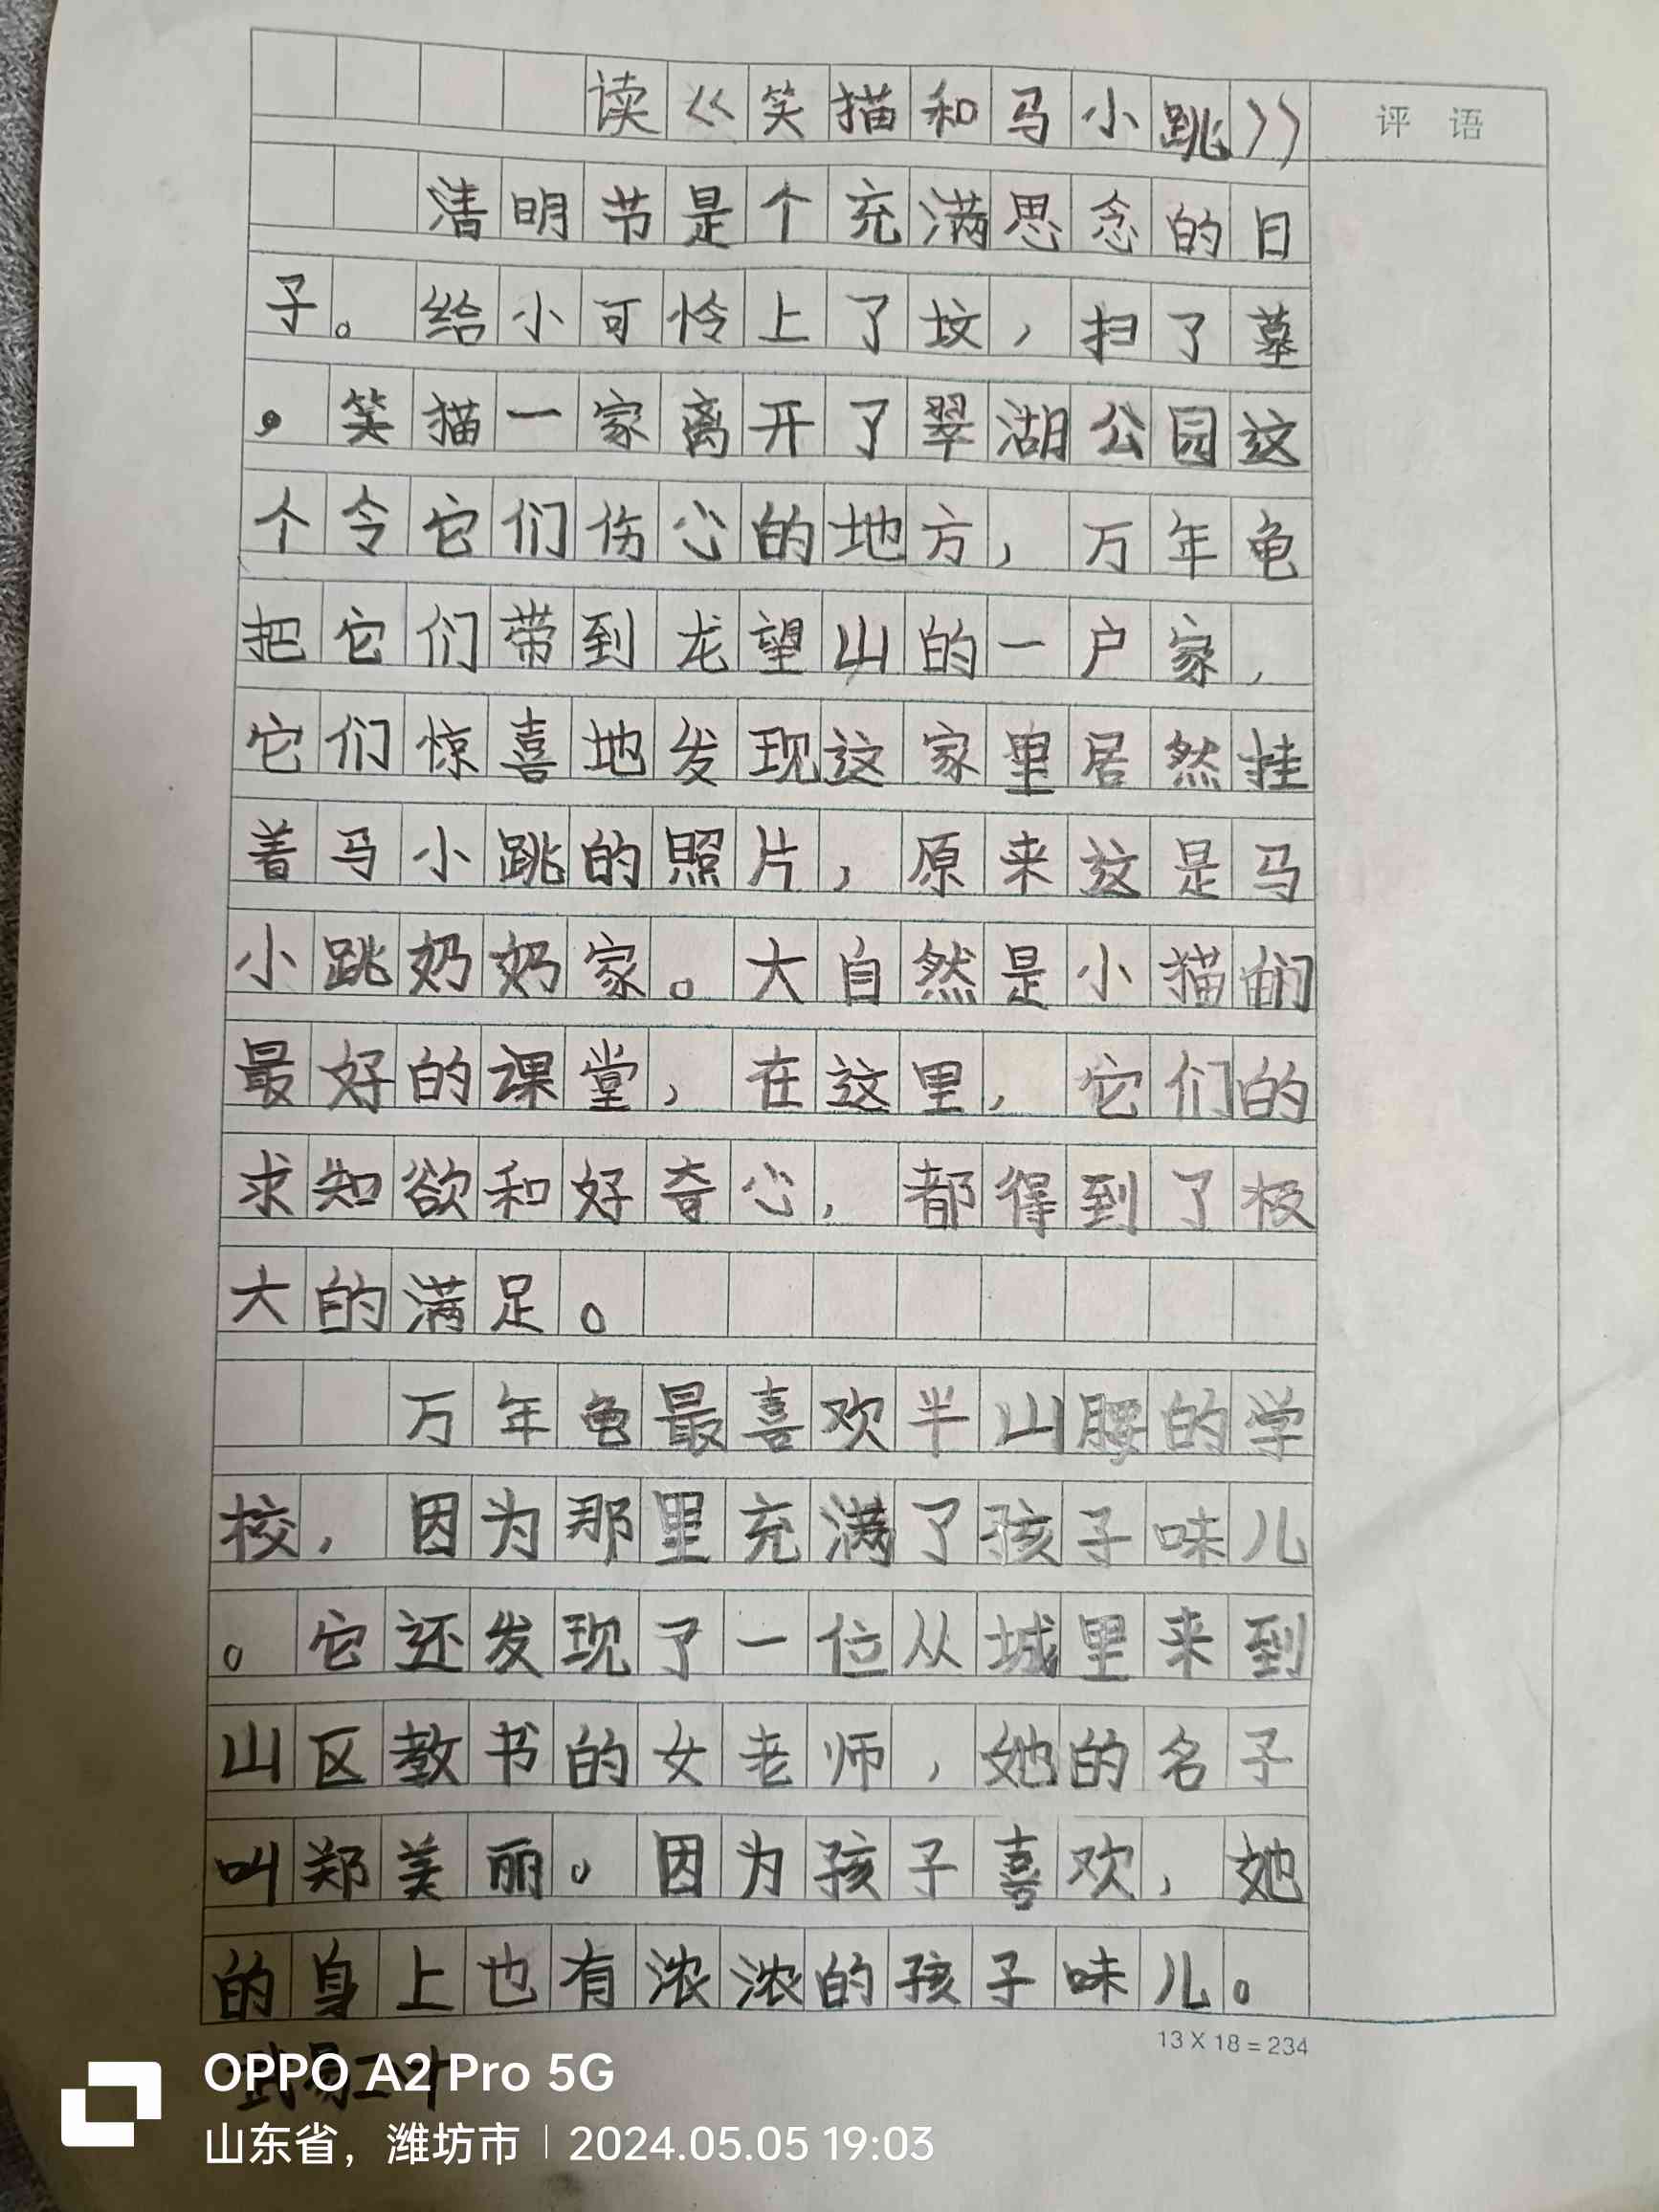 读《笑猫和马小跳》
评 语
清明节是个充满思念的日
子。给小可怜上了坟，扫了墓
。笑猫一家离开了翠湖公园这
个令它们伤心的地方，万年龟
把它们带到龙望山的一户家，
它们惊喜地发现这家里居然挂
着马小跳的照片，原来这是马
小跳奶奶家。大自然是小猫们
最好的课堂，在这里，它们的
求知欲和好奇心，都得到了极
大的满足。
万年龟最喜欢半山腰的学
校，因为那里充满了孩子味儿
。它还发现了一位从城里来到
山区教书的女老师，她的名子
叫郑美丽。因为孩子喜欢，她
的身上也有浓浓的孩子味儿。
13 X 18 = 234
OPPO A2 Pro 5G
山东省，潍坊市 | 2024.05.05 19:03